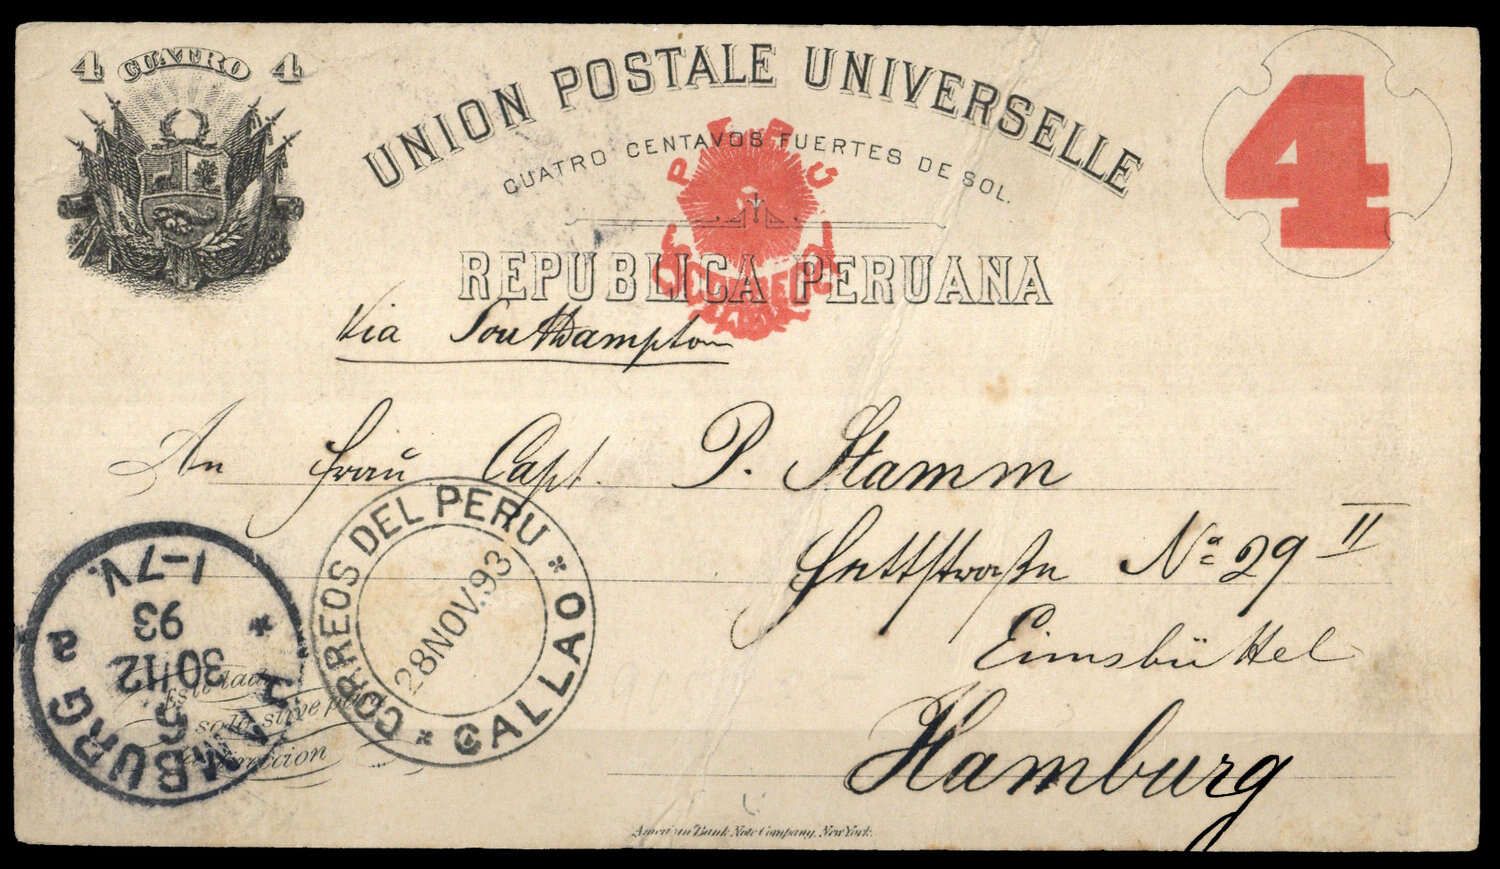 4 CUATRO 4
UNION POSTALE UNIVERSELLE
CUATRO CENTAVOS FUERTES DE SOL.
4
REPUBLICA PERUANA
Via Southampton
An Frau Capt. P. Stamm
No 29 II
Eimsbüttel
Hamburg
CORREOS DEL PERU * CALLAO *
28 NOV. 93
HAMBURG a *
5
30/12
93
1-7V.
Este lado
solo sirve para
la direccion
American Bank Note Company, New York.